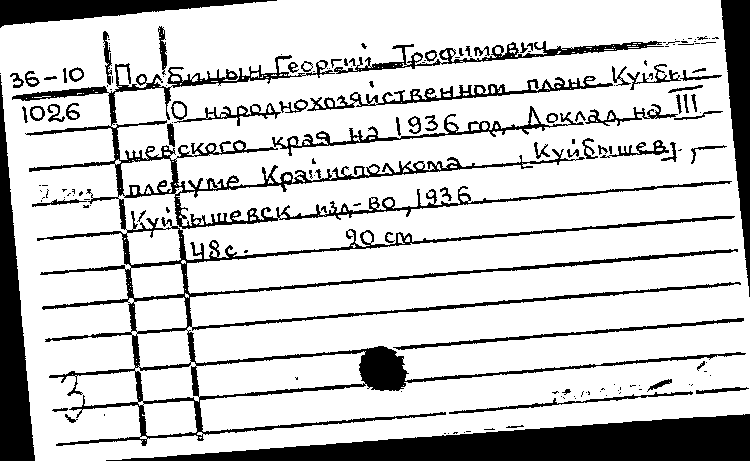 36-10 Полбицын, Георгий Трофимович
1026 О народнохозяйственном плане Куйбы-
шевского края на 1936 год. Доклад на III
пленуме Крайисполкома. [Куйбышев],
Куйбышевск. изд-во, 1936.
48 с. 20 см.
3